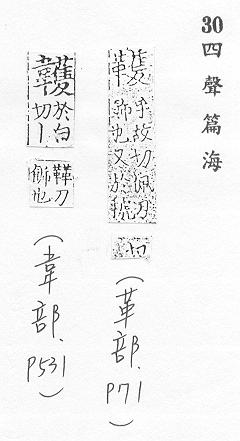 30
四聲篇海
韄
乎故切佩刀
飾也又於虢
切
(革部.P71)
於白
切丨
刀
飾也
(韋部.P531)